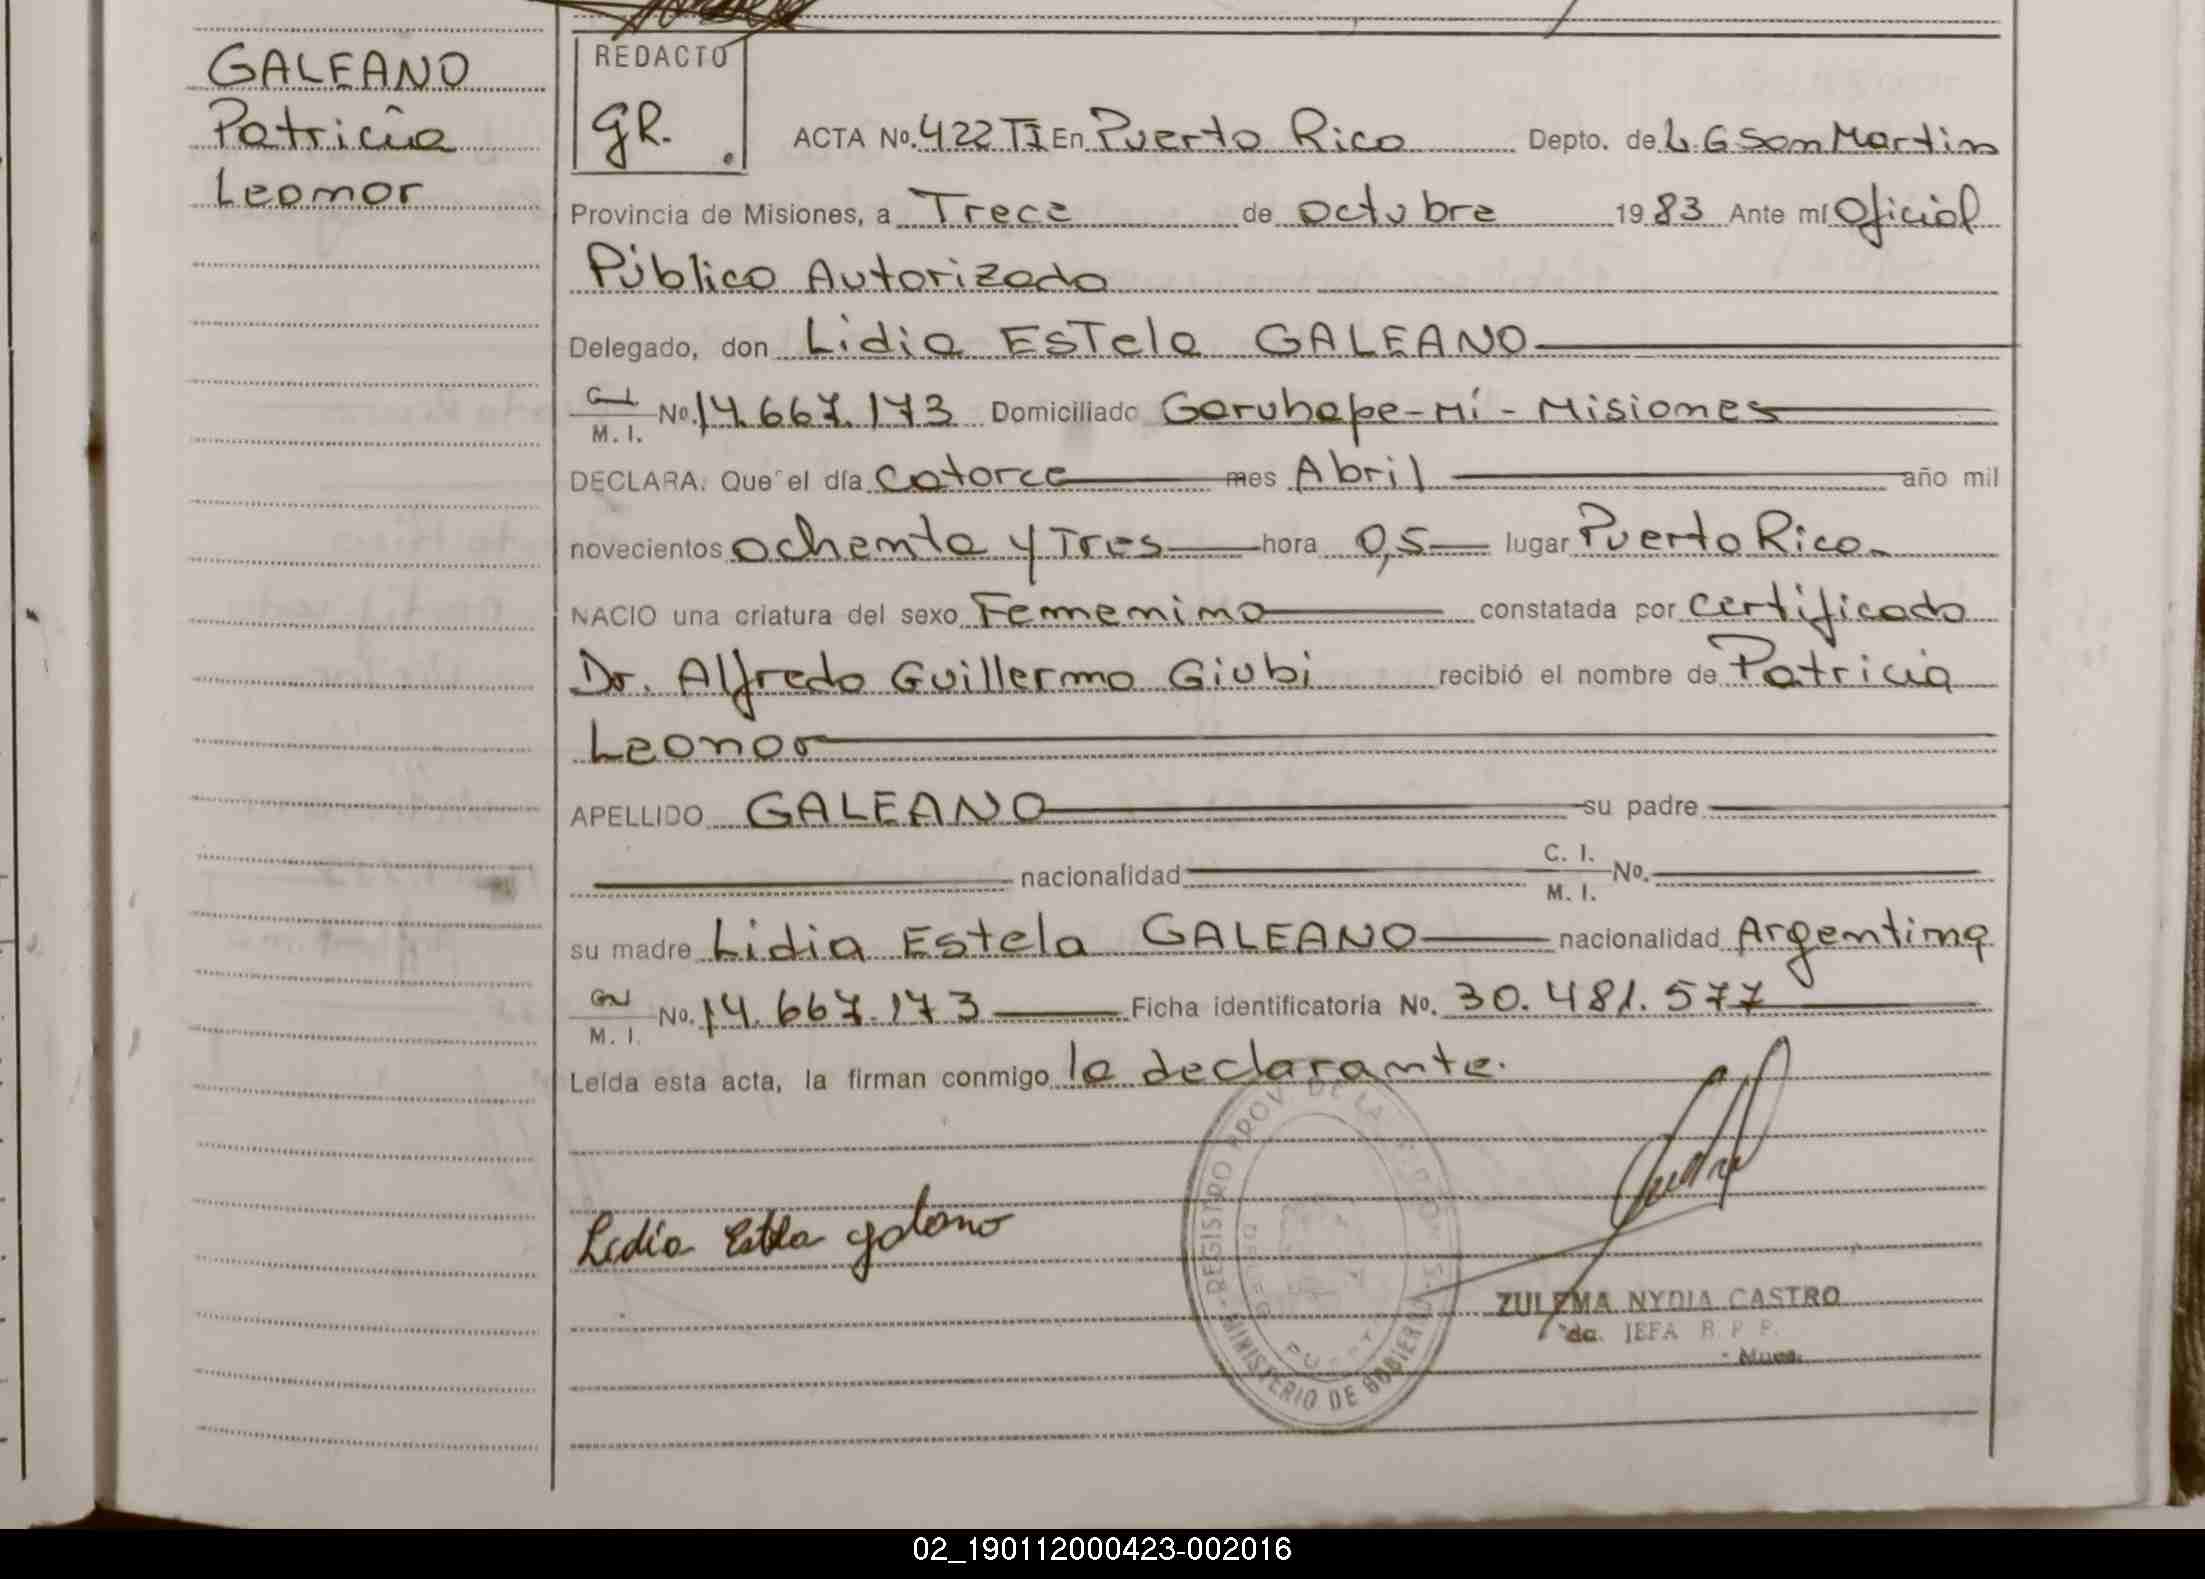 GALEANO
Patricia
Leonor
REDACTO
GR.
ACTA No. 422 TI En Puerto Rico Depto. de L. G San Martin
Provincia de Misiones, a Trece de octubre 1983 Ante mí Oficial
Público Autorizado
Delegado, don Lidia EsTela GALEANO
M. I. No. 14.667.173 Domiciliado Garuhape-Mí-Misiones
DECLARA: Que el día catorce mes Abril año mil
novecientos ochenta y Tres hora 0,5 lugar Puerto Rico.
NACIO una criatura del sexo Femenino constatada por certificado
Dr. Alfredo Guillermo Giubi recibió el nombre de Patricia
Leonor
APELLIDO GALEANO su padre
nacionalidad C. I. M. I. No.
su madre Lidia Estela GALEANO nacionalidad Argentina
M. I. No. 14.667.173 Ficha identificatoria No. 30.481.577
Leída esta acta, la firman conmigo la declarante.
Lidia Estla galeano
REGISTRO PROV. DE LAS
MINISTERIO DE GOBIERNO
ZULEMA NYDIA CASTRO
JEFA R. P. P.
02_190112000423-002016